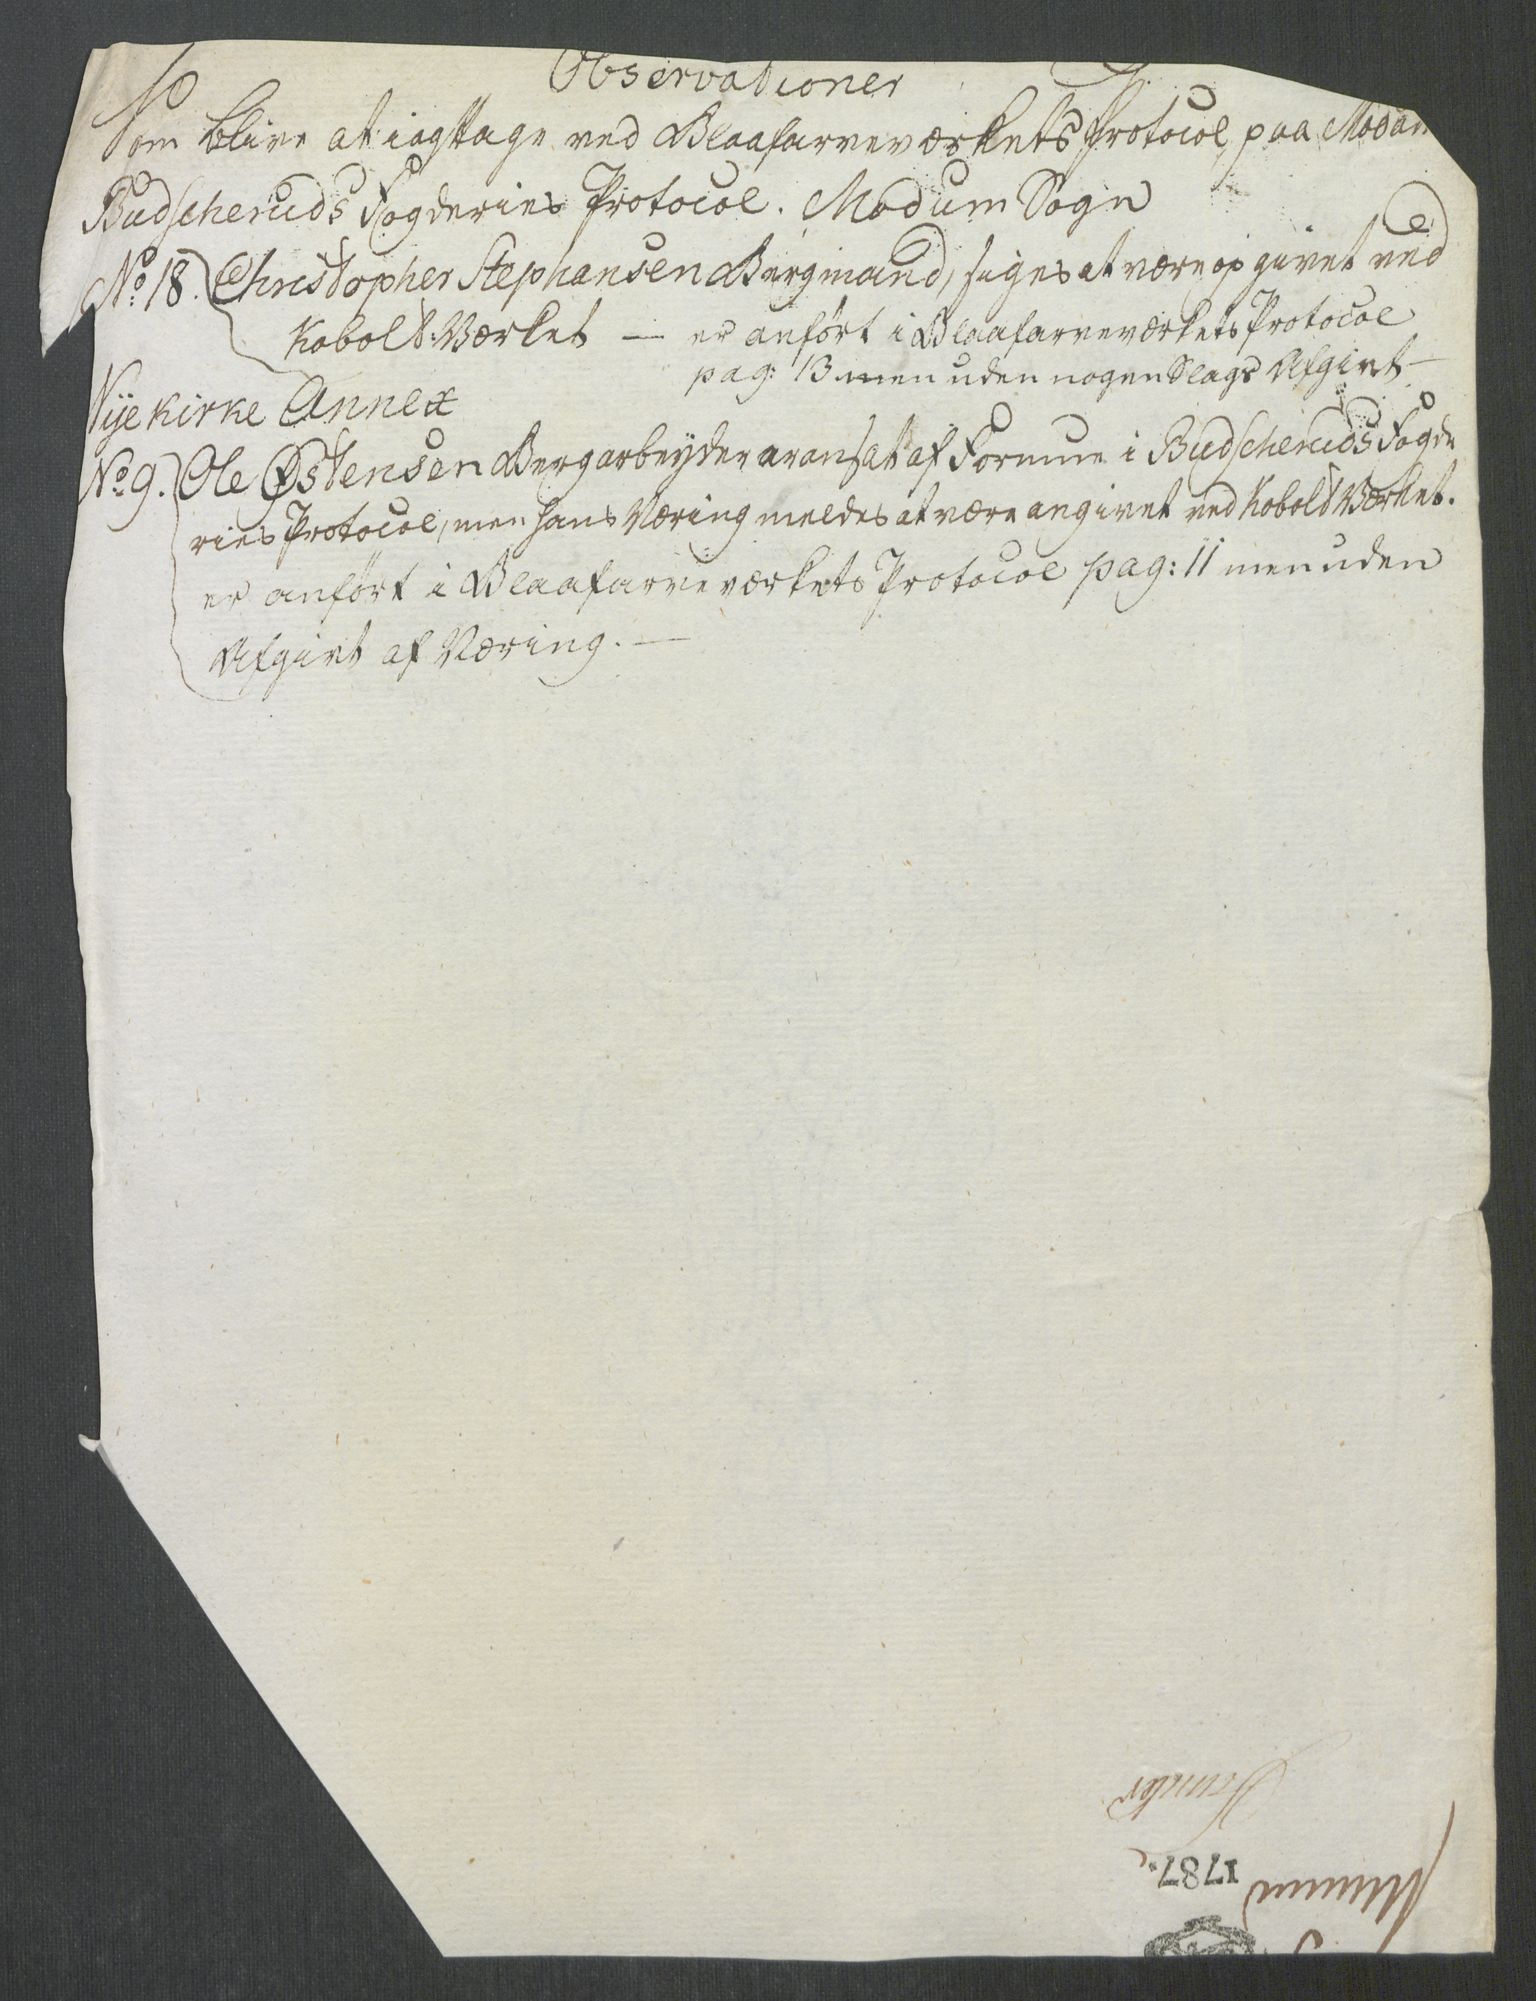 Observationer
Som blive at iagttage ved Blaafarveværkets Protocol, paa Modum
Budscheruds Fogderies Protocol. Modum Sogn
No. 18. Christopher Stephansen Bergmand, siges at være opgivet ved
Kobolt:Værket — er anført i Blaafarveværkets Protocol
pag: 13 men uden nogen Slags Afgivt —
Nye Kirke Annex
No. 9. Ole Østensen Bergarbeyder ansat af Formue i Budscheruds Fogde
ries Protocol, men hans Næring meldes at være angivet ved Kobolt Værket.
er anført i Blaafarveværkets Protocol pag: 11 men uden
Afgivt af Næring. —
1787.